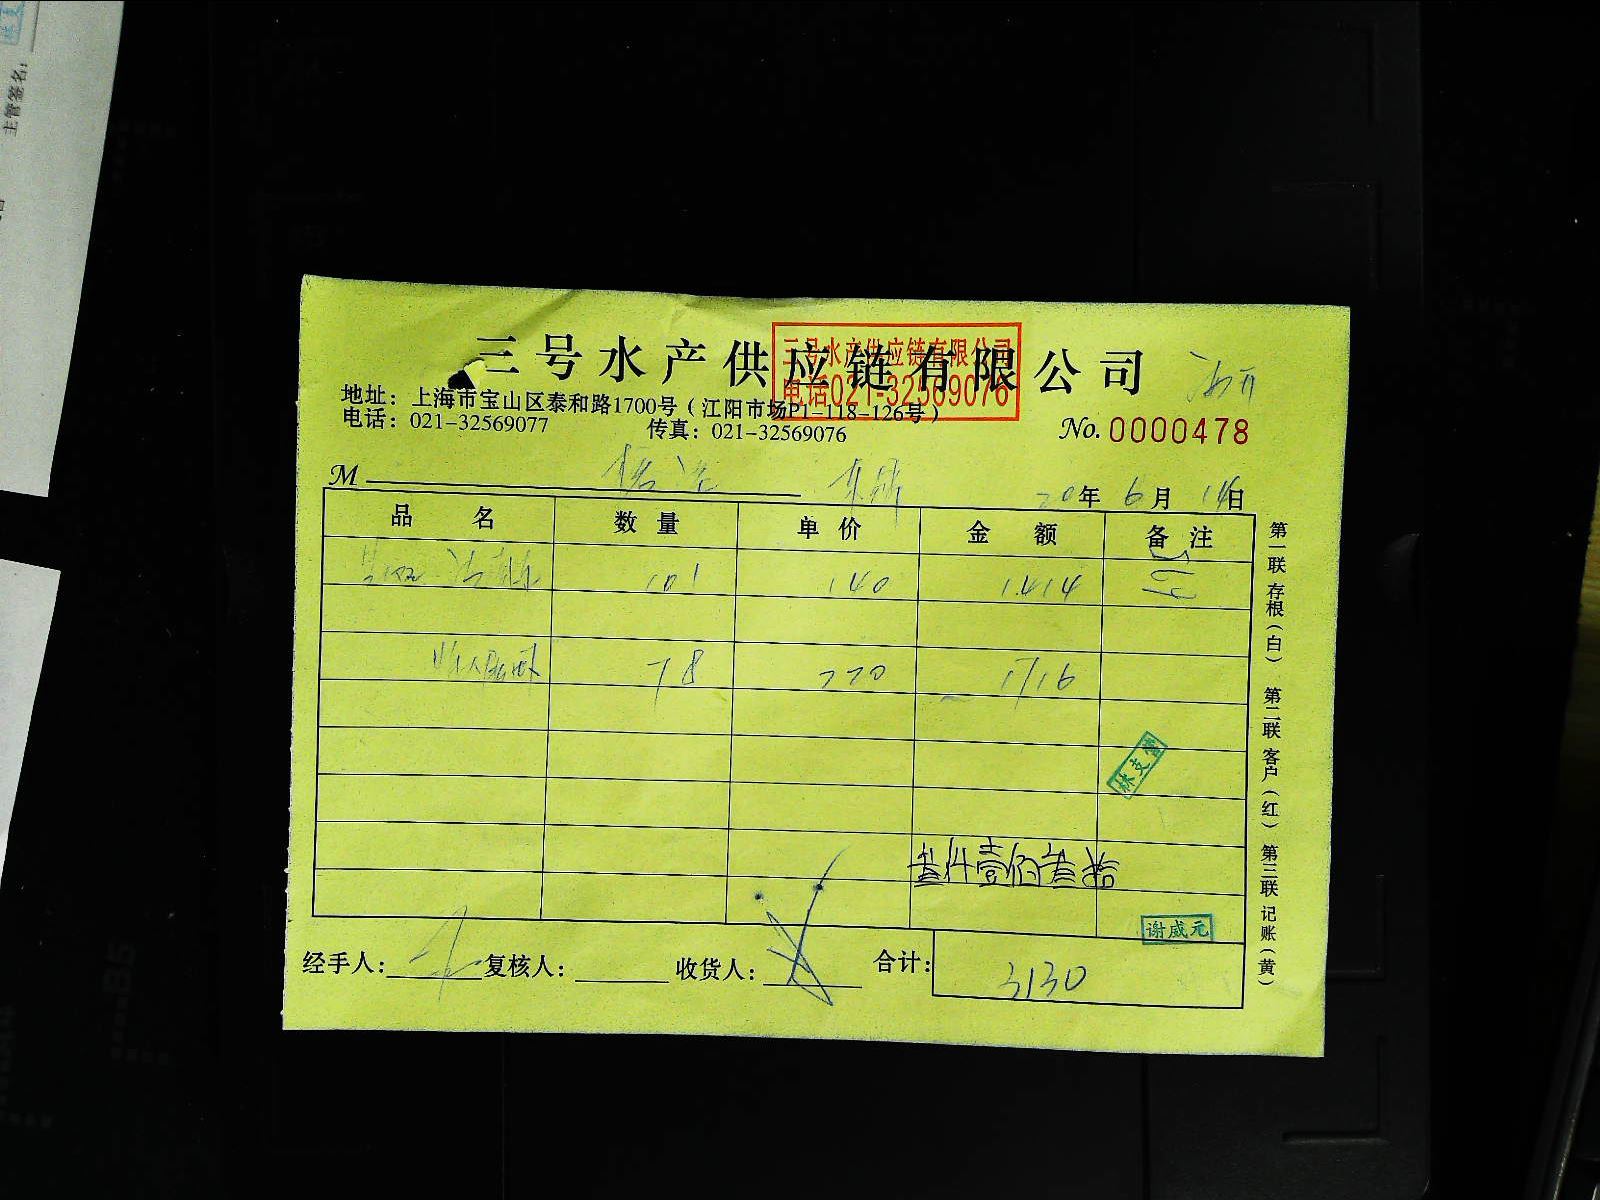 主管签名:
三号水产供应链有限公司
三号水产供应链有限公司
电话021-32569076
地址：上海市宝山区泰和路1700号（江阳市场P1-118-126号）
电话：021-32569077 传真：021-32569076
No. 0000478
M
20年 6月 14日
品 名 数量 单价 金 额 备注
101 140 1414
78 220 1716
林支堂
叁仟壹佰叁拾
谢威元
经手人: 复核人: 收货人: 合计: 3130
第一联 存根（白） 第二联 客户（红） 第三联 记账（黄）